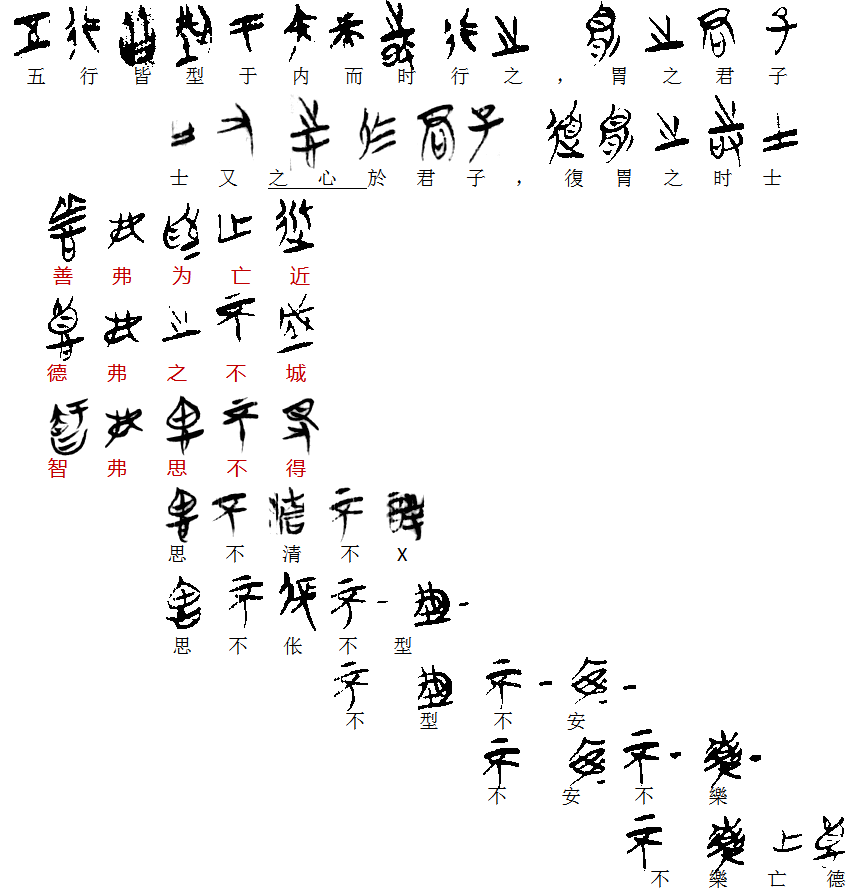 五行皆型于内而时行之，胃之君子
士又之心於君子，復胃之时士
善弗为亡近
德弗之不城
智弗思不得
思不清不X
思不伥不型
不型不安
不安不樂
不樂亡德